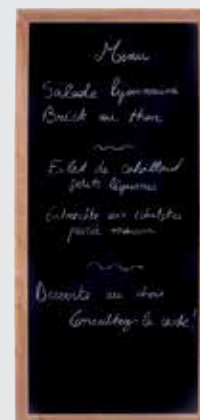 Menu
Salade lyonnaise
Brick au thon
Filet de cabillaud
petits légumes
Entrecôte aux échalotes
purée maison
Desserts au choix
Consultez la carte!